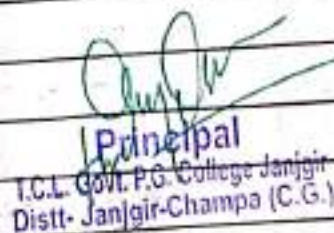 Principal
T.C.L. Govt. P.G. College Janjgir
Distt- Janjgir-Champa (C.G.)